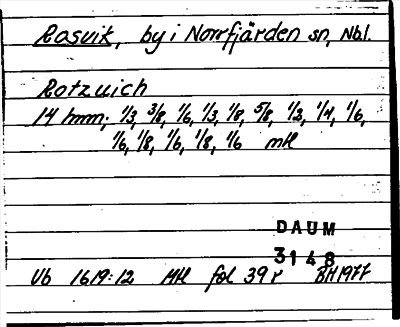 Rosvik, by i Norrfjärden sn, Nbl.
Rotzuich
14 hmm; 1/3, 3/8, 1/6, 1/3, 1/8, 5/8, 1/2, 1/4, 1/6,
1/6, 1/8, 1/6, 1/8, 1/6 mtl
DAUM
3148
Vb 1619:12 Mtl fol 39 r BH1977